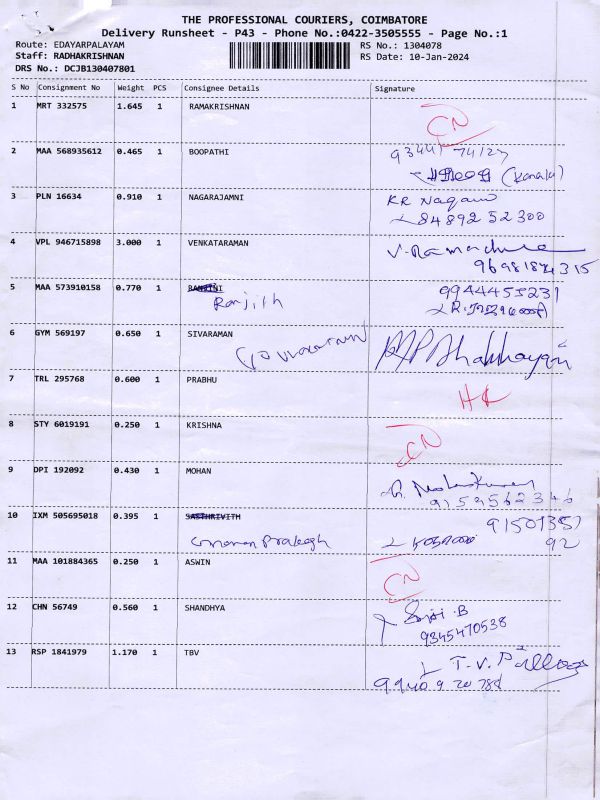 THE PROFESSIONAL COURIERS, COIMBATORE
Delivery Runsheet - P43 - Phone No.:0422-3505555 - Page No.:1
Route: EDAYARPALAYAM RS No.: 1304078
Staff: RADHAKRISHNAN RS Date: 10-Jan-2024
DRS No.: DCJB130407801
S No Consignment No Weight PCS Consignee Details Signature
1 MRT 332575 1.645 1 RAMAKRISHNAN CN
2 MAA 568935612 0.465 1 BOOPATHI 93441 74127
(Kamala)
3 PLN 16634 0.910 1 NAGARAJAMNI KR Nagami
84892 52300
4 VPL 946715898 3.000 1 VENKATARAMAN V. Ramachandra
96981874315
5 MAA 573910158 0.770 1 RANJINI 9944455231
Ranjith
6 GYM 569197 0.650 1 SIVARAMAN
7 TRL 295768 0.600 1 PRABHU
8 STY 6019191 0.250 1 KRISHNA CN
9 DPI 192092 0.430 1 MOHAN
9159562346
10 IXM 505695018 0.395 1 SASTHRIVITH 91501357
Prakash 92
11 MAA 101884365 0.250 1 ASWIN CN
12 CHN 56749 0.560 1 SHANDHYA B
9345470538
13 RSP 1841979 1.170 1 TBV T. V. Pillai